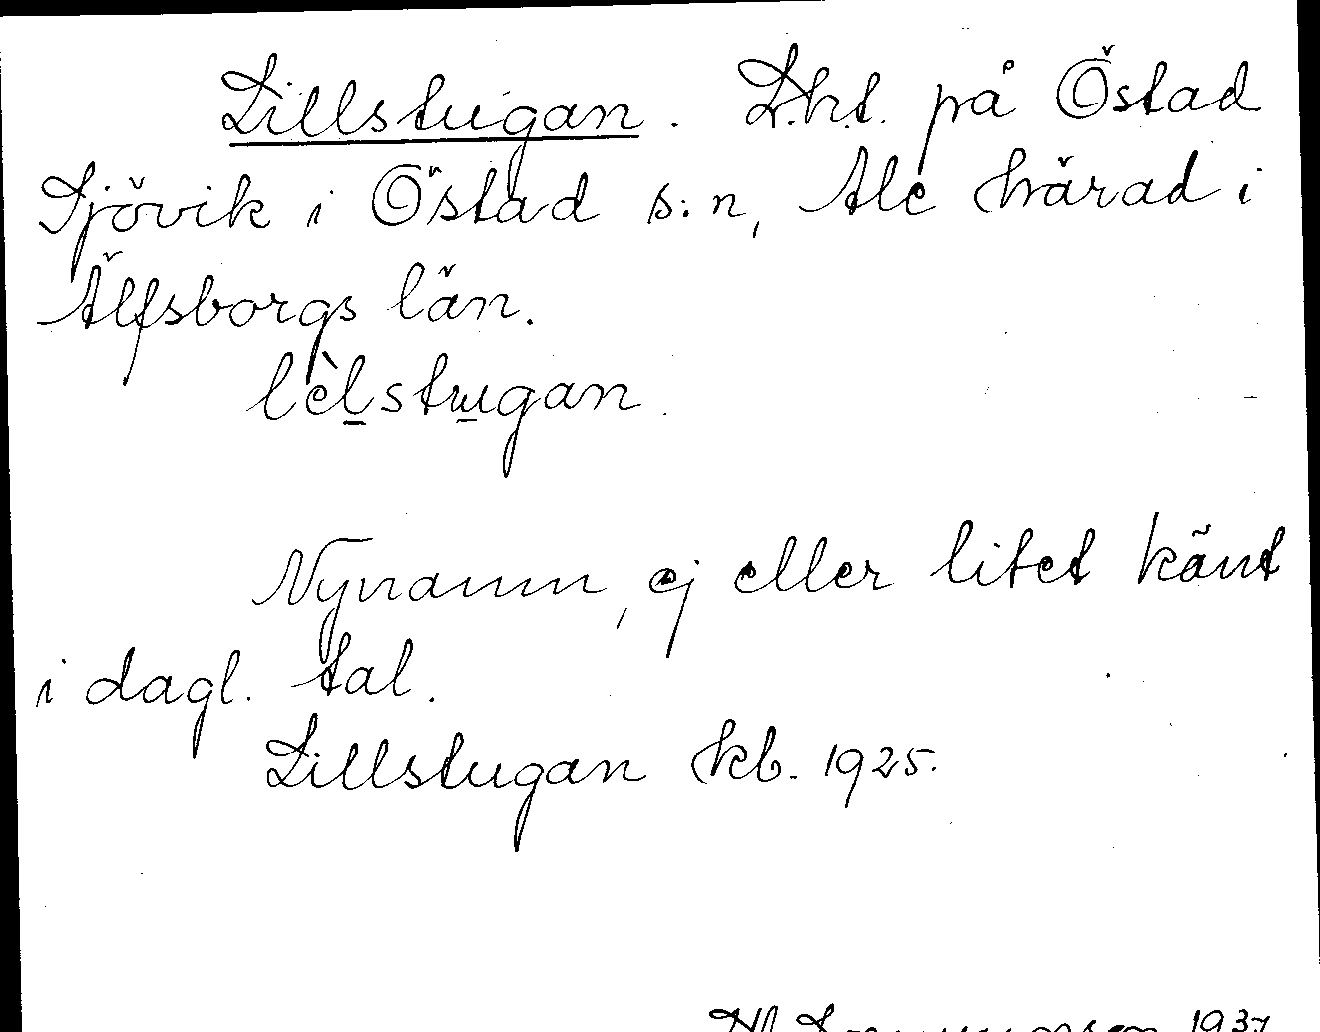 Lillstugan. L.h.t. på Östad
Sjövik i Östad s:n, Ale härad i
Älfsborgs län.
lèl̠stɯ̠gan.
Nynamn, ej eller litet känt
i dagl. tal.
Lillstugan kb. 1925.
1937